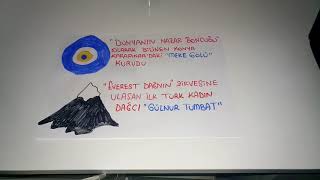 "DÜNYANIN NAZAR BONCUĞU"
OLARAK BİLİNEN KONYA
KARAPINAR'DAKİ "MEKE GÖLÜ"
KURUDU
"EVEREST DAĞI'NIN" ZİRVESİNE
ULAŞAN İLK TÜRK KADIN
DAĞCI "GÜLNUR TUMBAT"